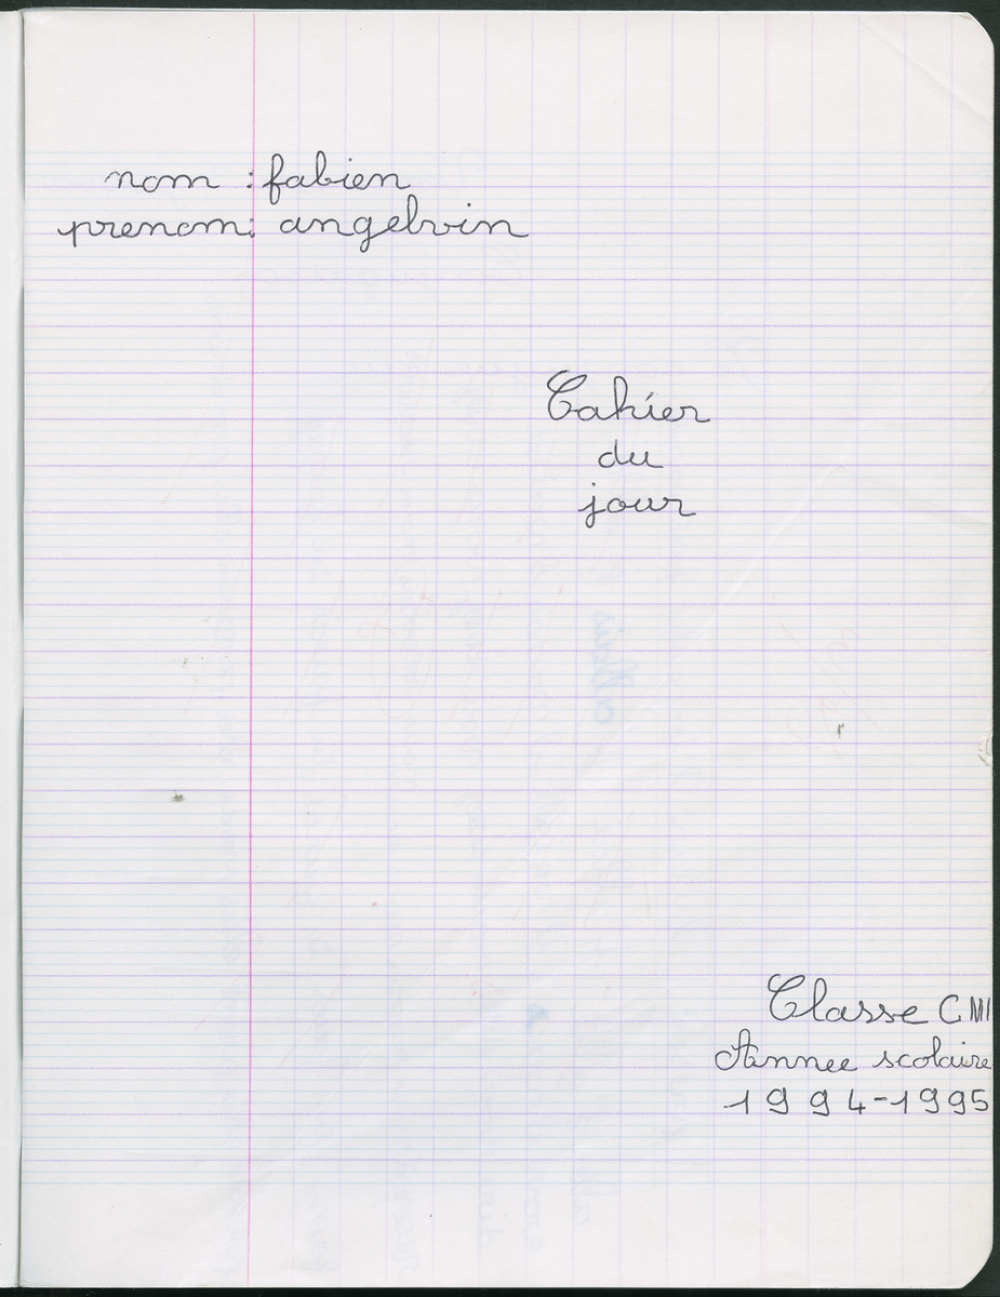 nom : fabien
prenom: angelvin
Cahier
du
jour
Classe CM1
Année scolaire
1994-1995